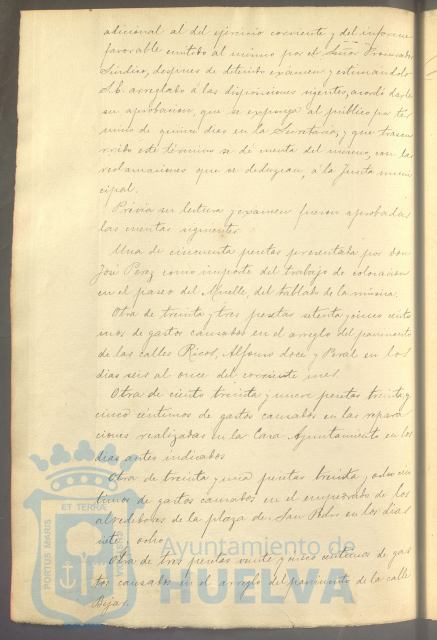 adicional al del ejercicio corriente y del informe
favorable emitido al mismo por el Señor Procurador
Síndico, despues de detenido exámen y estimandolo
S.E. arreglado á las disposiciones vigentes, acordó darle
su aprobacion, que se exponga al público por tér
mino de quince dias en la Secretaría, y que trascu
rrido este término se dé cuenta del mismo, con las
reclamaciones que se deduzcan, á la Junta muni
cipal.
Prévia su lectura y exámen fueron aprobadas
las cuentas siguientes
Una de cincuenta pesetas presentada por don
José Perez como importe del trabajo de colocacion
en el paseo del Muelle, del tablado de la música.
Otra de treinta y tres pesetas setenta y cinco cénti
mos de gastos causados en el arreglo del pavimento
de las calles Ricos, Alfonso doce y Peral en los
dias seis al once del corriente mes.
Otra de ciento treinta y nueve pesetas treinta y
cinco céntimos de gastos causados en las repara
ciones realizadas en la Casa Ayuntamiento en los
dias antes indicados
Otra de treinta y una pesetas treinta y ocho cén
timos de gastos causados en el empedrado de los
alrededores de la plaza de San Pedro en los dias
siete y ocho
Otra de tres pesetas veinte y cinco céntimos de gas
tos causados en el arreglo del pavimento de la calle
Bejar.
PORTUS MARIS
ET TERRA
CUSTODIA
Ayuntamiento de
HUELVA